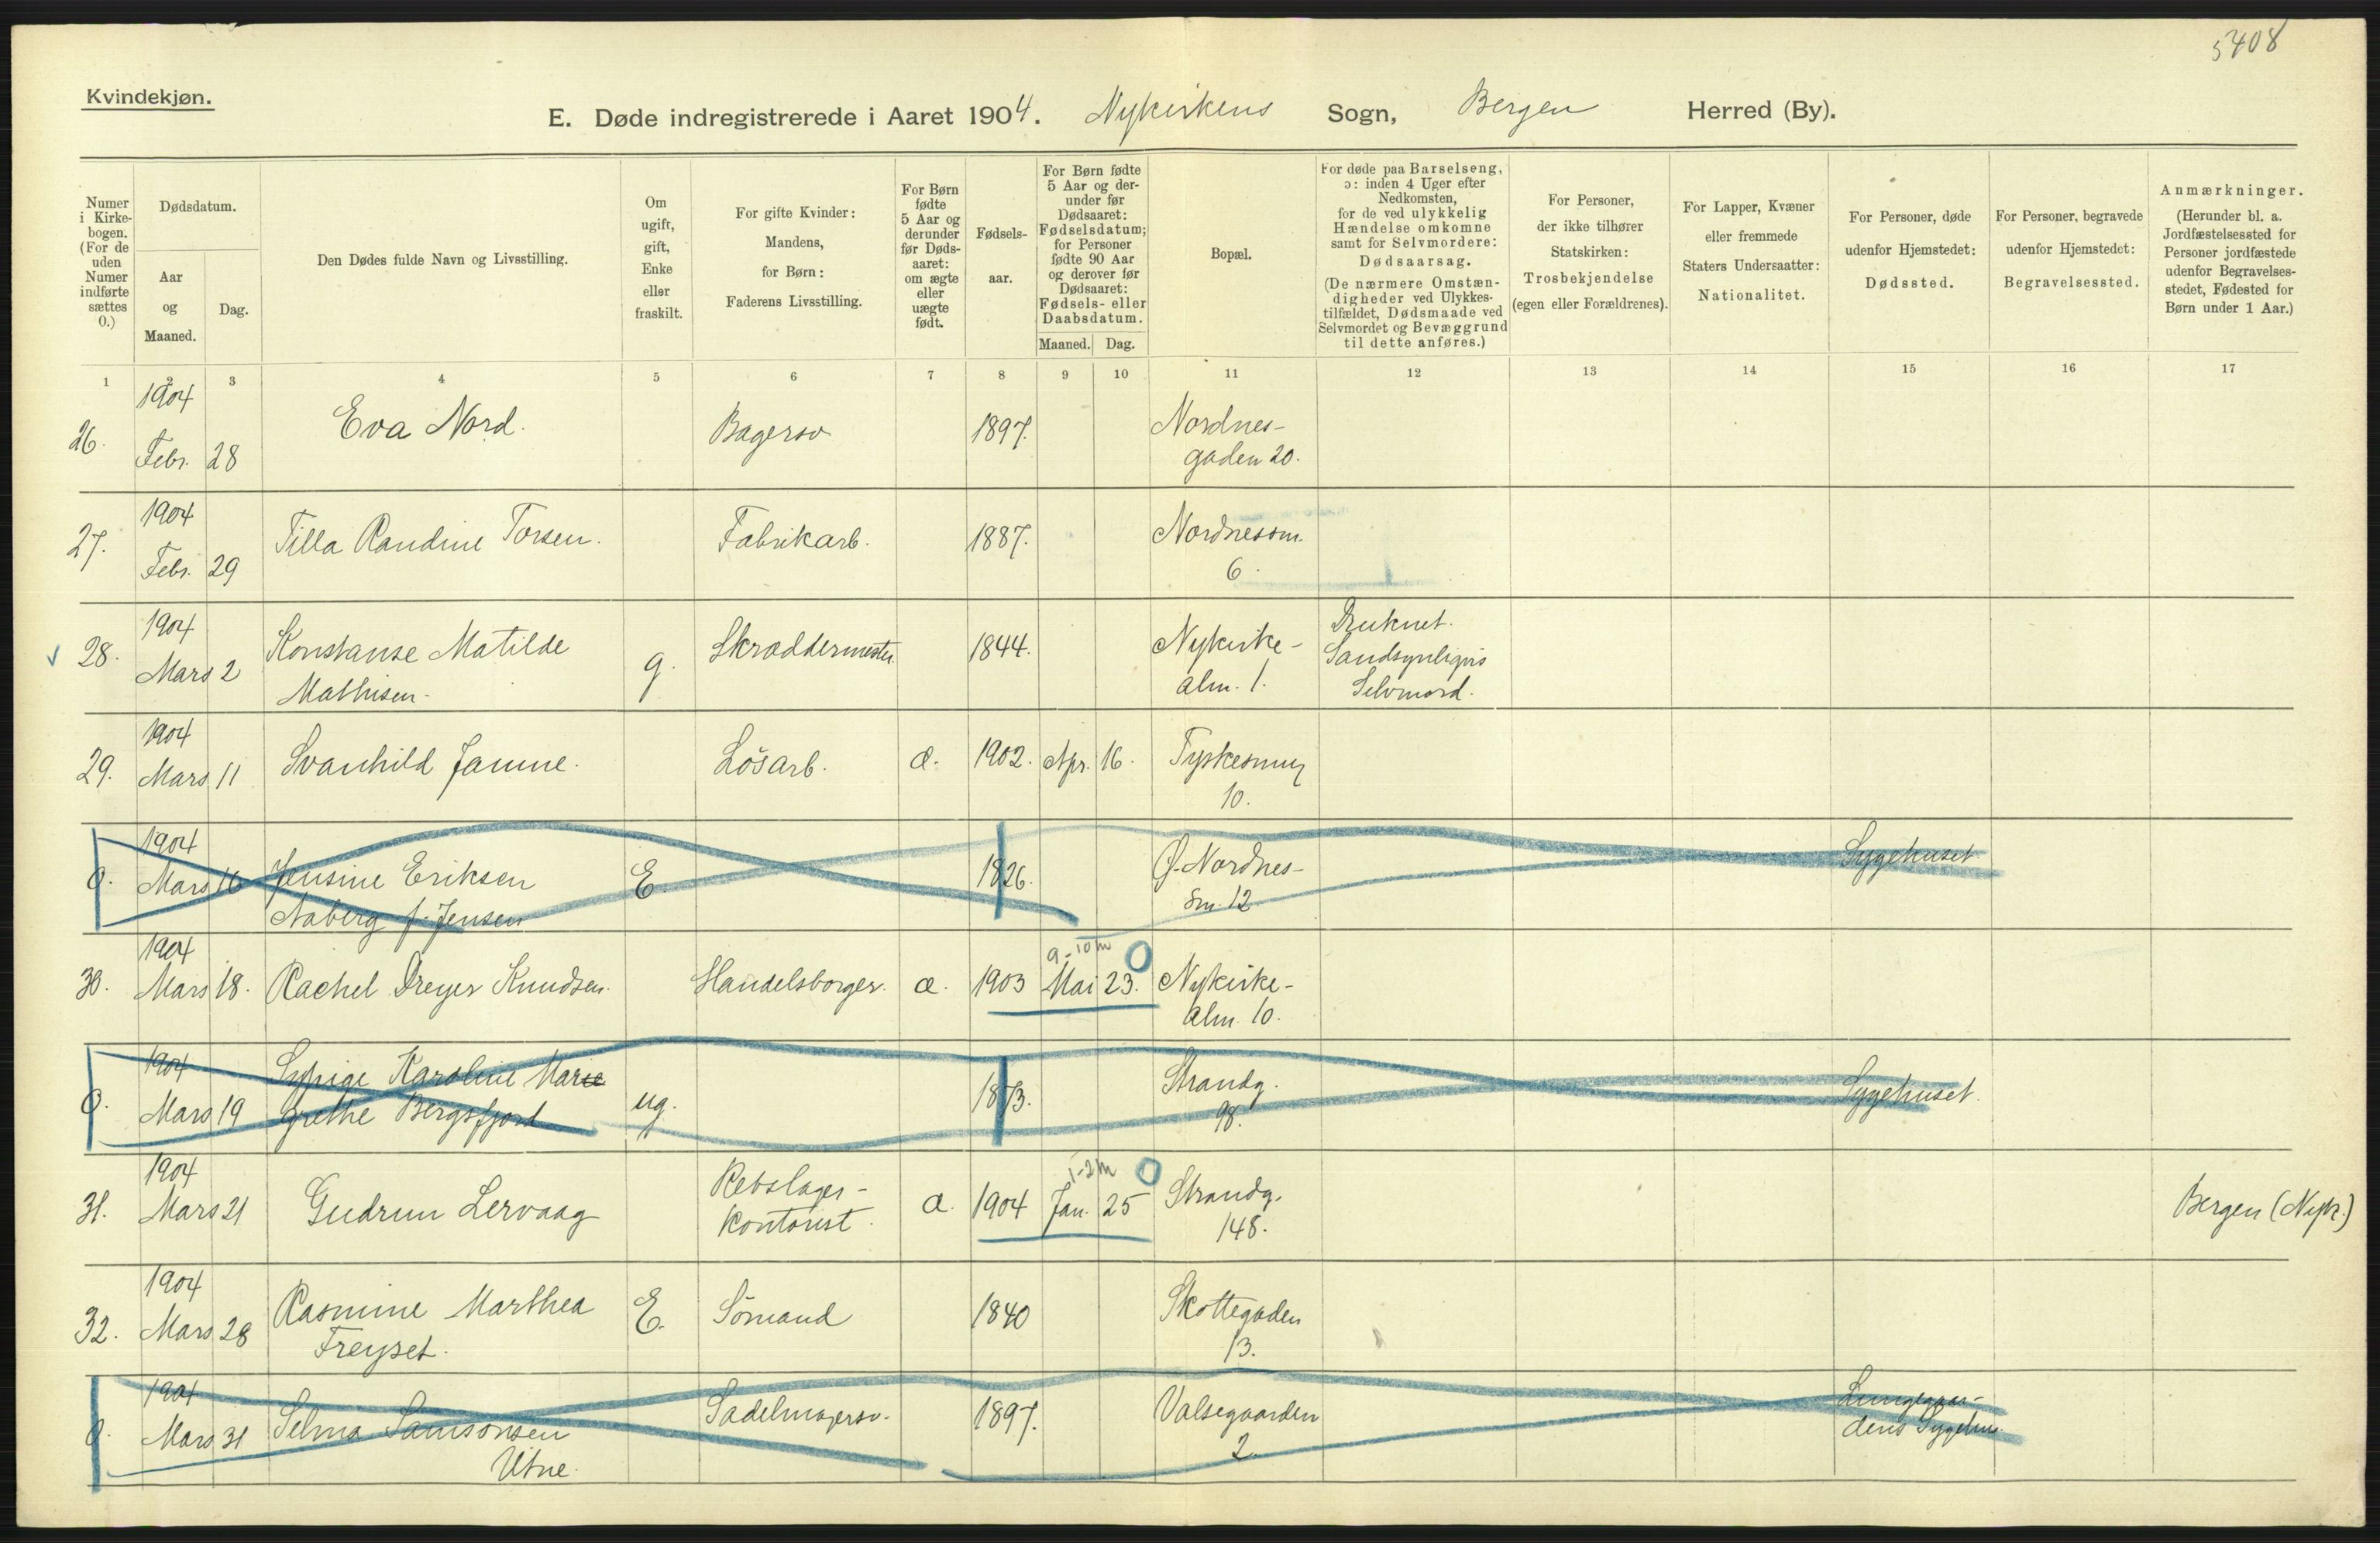 5408
Kvindekjøn.
E. Døde indregistrerede i Aaret 1904. Nykirkens Sogn, Bergen Herred (By).
Numer i Kirkebogen. (For de uden Numer indførte sættes 0.)
Dødsdatum.
Aar og Maaned.
Dag.
Den Dødes fulde Navn og Livsstilling.
Om ugift, gift, Enke eller fraskilt.
For gifte Kvinder: Mandens, for Børn: Faderens Livsstilling.
For Børn fødte 5 Aar og derunder før Dødsaaret: om ægte eller uægte født.
Fødselsaar.
For Børn fødte 5 Aar og derunder før Dødsaaret: Fødselsdatum; for Personer fødte 90 Aar og derover før Dødsaaret: Fødsels- eller Daabsdatum.
Maaned. Dag.
Bopæl.
For døde paa Barselseng, ɔ: inden 4 Uger efter Nedkomsten, for de ved ulykkelig Hændelse omkomne samt for Selvmordere: Dødsaarsag. (De nærmere Omstændigheder ved Ulykkestilfældet, Dødsmaade ved Selvmordet og Bevæggrund til dette anføres.)
For Personer, der ikke tilhører Statskirken: Trosbekjendelse (egen eller Forældrenes).
For Lapper, Kvæner eller fremmede Staters Undersaatter: Nationalitet.
For Personer, døde udenfor Hjemstedet: Dødssted.
For Personer, begravede udenfor Hjemstedet: Begravelsessted.
Anmærkninger. (Herunder bl. a. Jordfæstelsessted for Personer jordfæstede udenfor Begravelsesstedet, Fødested for Børn under 1 Aar.)
1 2 3 4 5 6 7 8 9 10 11 12 13 14 15 16 17
26. 1904 Febr. 28 Eva Nord. Bagersv. 1897. Nordnes-
gaden 20.
27. 1904 Febr. 29 Tilla Randine Torsen. Fabrikarb. 1887. Nordnessm.
6.
28. 1904 Mars 2 Konstanse Matilde g. Skræddermester 1844. Nykirke- Druknet.
Mathisen. alm. 1. Sandsynligvis
Selvmord.
29. 1904 Mars 11 Svanhild Jamne. Løsarb. æ. 1902. Apr. 16. Tyskesmug
10.
0. 1904 Mars 16 Jensine Eriksen E. 1826. Ø. Nordnes- Sygehuset
Aaberg f. Jensen sm. 12
30. 1904 Mars 18. Rachel Dreyer Knudsen. Handelsborger. æ. 1903 Mai 23. Nykirke-
9-10 m 0 alm. 10.
0. 1904 Mars 19 Sypige Karoline Marie ug. 1873. Strandg. Sygehuset.
Grethe Bergsfjord 98.
31. 1904 Mars 21 Gudrun Lervaag Rebslager- æ. 1904 Jan. 25 Strandg. Bergen (Nyk.)
kontorist. 1-2 m 0 148.
32. 1904 Mars 28 Rasmine Marthea E. Sømand 1840 Skottegaden
Freyset. 13.
0. 1904 Mars 31 Selma Samsonsen Sadelmagersv. 1897. Valsegaarden Lungegaar-
Utne. 2. dens Sygehus